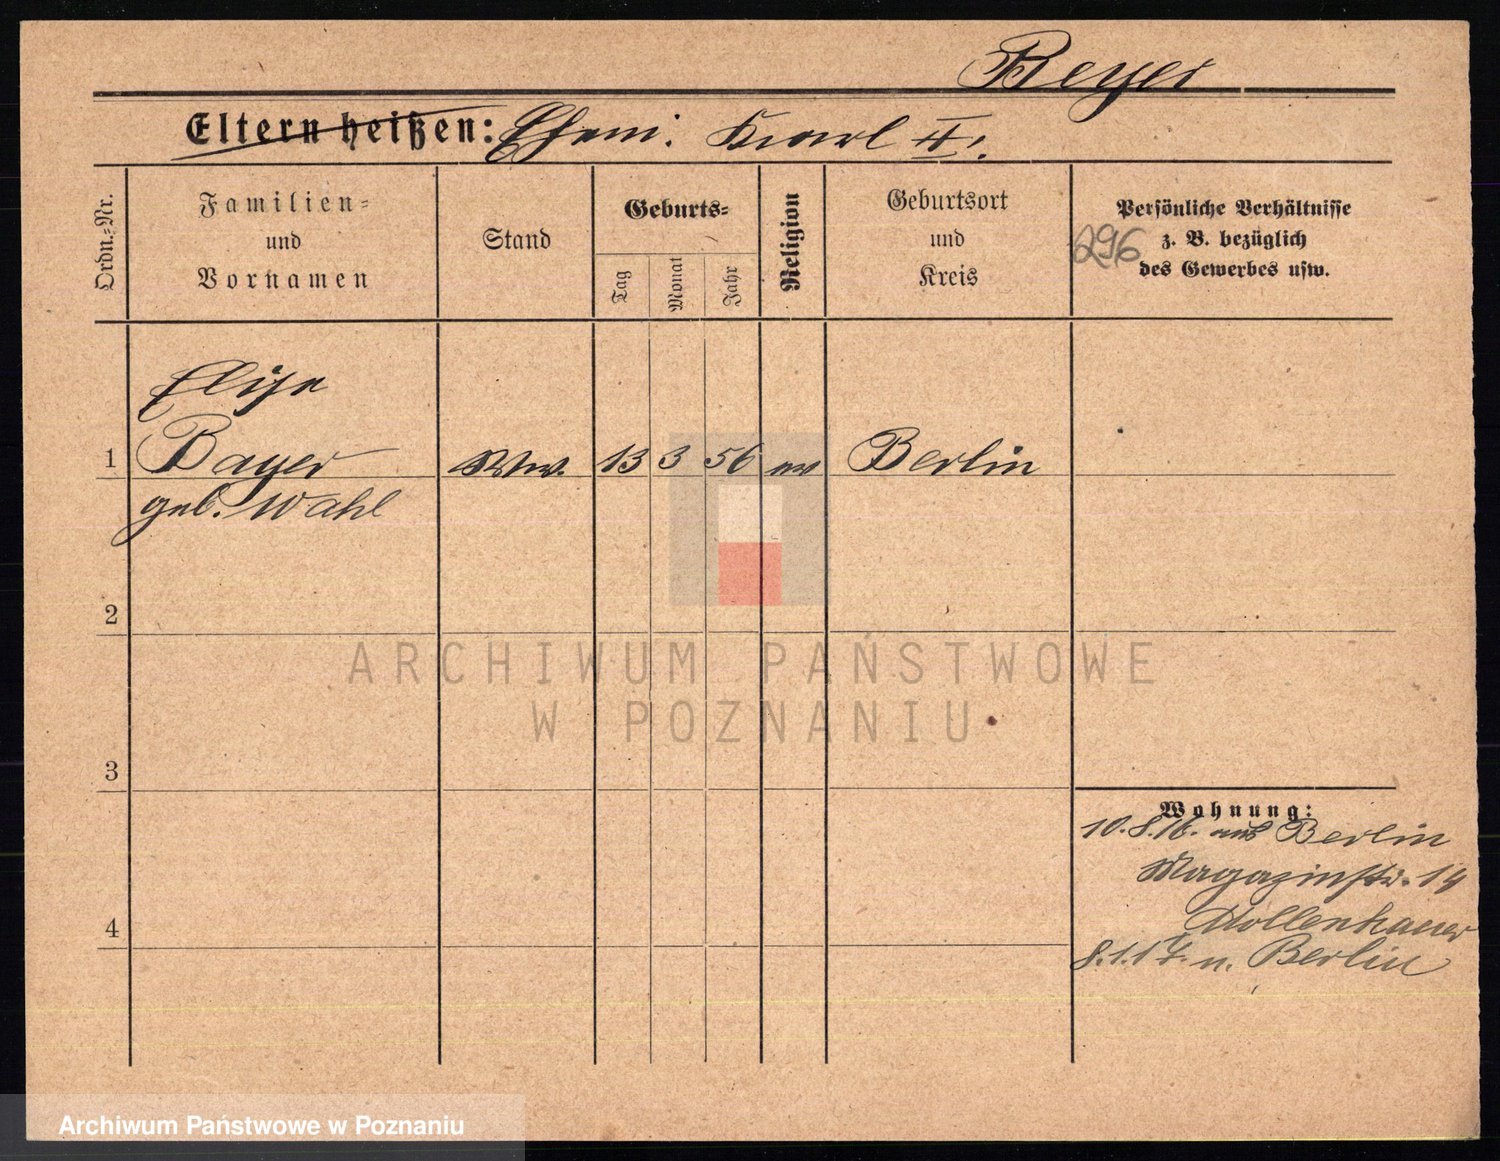 Beyer
Eltern heißen: Ehem: Karl II.
Ordn.-Nr.
Familien-
und
Vornamen
Stand
Geburts-
Tag
Monat
Jahr
Religion
Geburtsort
und
Kreis
Persönliche Verhältnisse
z. B. bezüglich
des Gewerbes usw.
296
Elise
1 Bayer Ww. 13 3 56 ev Berlin
geb. Wahl
2
3
4
Wohnung:
10.8.16. aus Berlin
Magazinstr. 14
8.1.17. n. Berlin
ARCHIWUM PAŃSTWOWE
W POZNANIU
Archiwum Państwowe w Poznaniu